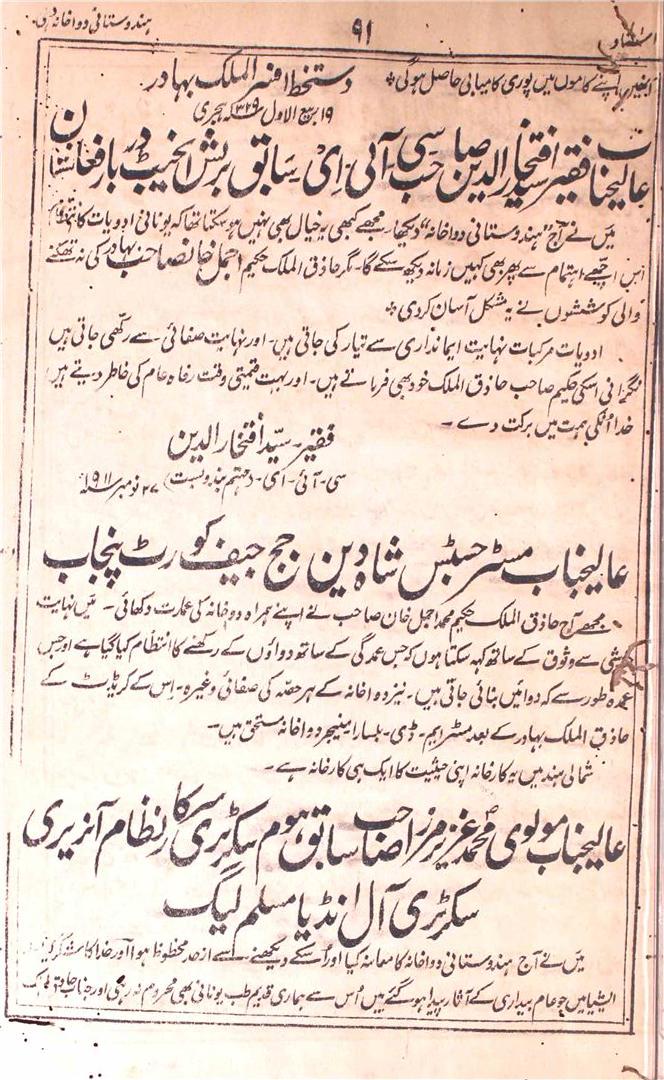 ہندوستانی دواخانہ دہلی
۹۱
اسناد
انہیں اپنے کاموں میں پوری کامیابی حاصل ہوگی *
دستخط افسر الملک بہادر
۱۹ ربیع الاول ۱۳۲۹ ہجری
عالیجناب فقیر سید افتخار الدین صاحب سی۔ آئی۔ ای۔ سابق برٹش ایجنٹ دربار افغانستان
میں نے آج "ہندوستانی دواخانہ" دیکھا۔ مجھے کبھی یہ خیال بھی نہیں ہو سکتا تھا کہ یونانی ادویات کا
اس اچھے اہتمام سے پھر بھی کہیں زمانہ دیکھ سکے گا۔ مگر حاذق الملک حکیم اجمل خانصاحب بہادر کی نہ تھکنے
والی کوششوں نے یہ مشکل آسان کر دی *
ادویات مرکبات نہایت ایمانداری سے تیار کی جاتی ہیں۔ اور نہایت صفائی سے رکھی جاتی ہیں
نگرانی اسکی حکیم صاحب حاذق الملک خود بھی فرماتے ہیں۔ اور بہت قیمتی وقت رفاہ عام کی خاطر دیتے ہیں
خدا انکی ہمت میں برکت دے۔
فقیر۔ سید افتخار الدین
سی۔ آئی۔ ای۔ (مہتمم بندوبست) ۲۷ نومبر ۱۹۱۱
عالیجناب مسٹر جسٹس شاہ دین جج چیف کورٹ پنجاب
مجھے آج حاذق الملک حکیم محمد اجمل خان صاحب نے اپنے ہمراہ دواخانہ کی عمارت دکھائی۔ میں نہایت
خوشی سے وثوق کے ساتھ کہہ سکتا ہوں کہ جس عمدگی کے ساتھ دواؤں کے رکھنے کا انتظام کیا گیا ہے اور جس
عمدہ طور سے کہ دوائیں بنائی جاتی ہیں۔ نیز دواخانہ کے ہر حصہ کی صفائی وغیرہ۔ اس کے کریڈٹ کے
حاذق الملک بہادر کے بعد مسٹر ایم۔ ڈی۔ بلسارا مینیجر دواخانہ مستحق ہیں۔
شمالی ہند میں یہ کارخانہ اپنی حیثیت کا ایک ہی کارخانہ ہے۔
عالیجناب مولوی محمد عزیز مرزا صاحب سابق ہوم سکرٹری سرکار نظام آنریری
سکرٹری آل انڈیا مسلم لیگ
میں نے آج ہندوستانی دواخانہ کا معائنہ کیا اور اسکے دیکھنے سے ازحد محظوظ ہوا اور خدا کا شکر کیا
ایشیا میں جو عام بیداری کے آثار پیدا ہو گئے ہیں اُس سے ہماری قدیم طب یونانی بھی محروم نہ رہی اور جناب حاذق الملک